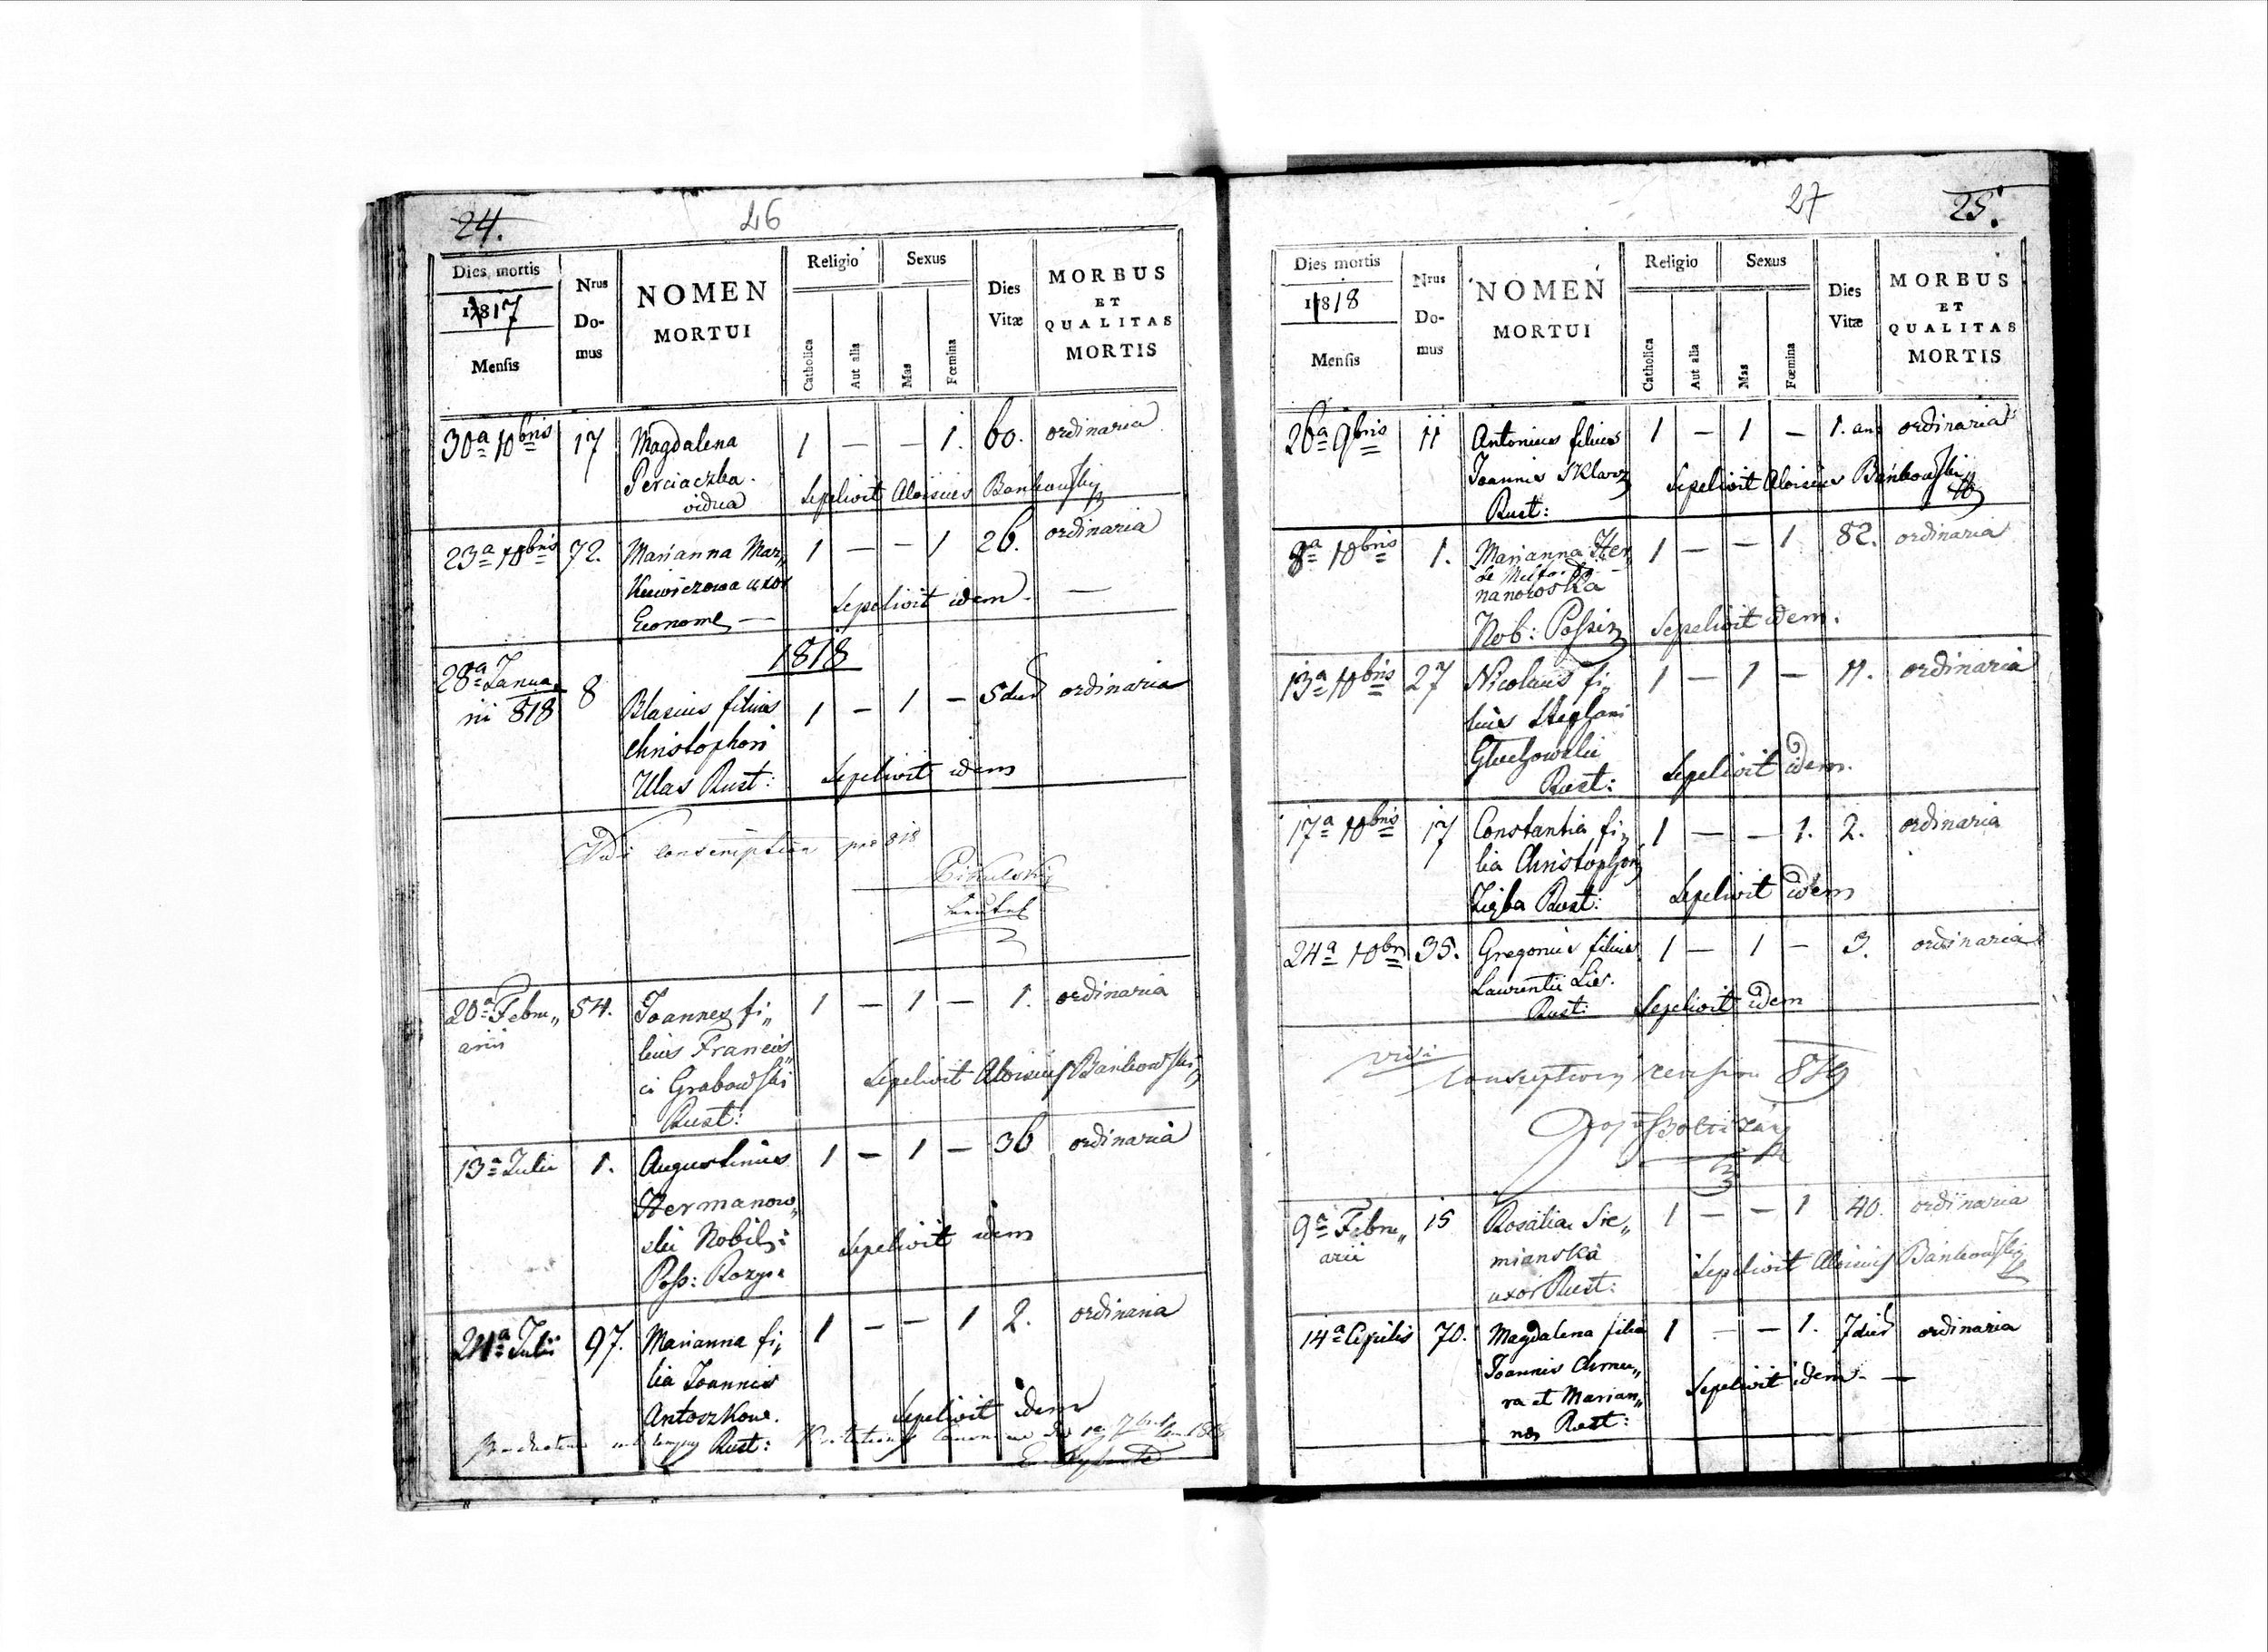 24.
26
Dies mortis
1817
Mensis
Nrus Do- mus
NOMEN
MORTUI
Religio
Catholica
Aut alia
Sexus
Mas
Fœmina
Dies
Vitæ
MORBUS
ET
QUALITAS
MORTIS
30a 10bris 17 Magdalena 1 — — 1. 60. ordinaria
Perciaczka.
vidua Sepelivit Aloisius Bańkowski
23a 10bris 72. Marianna Mar„ 1 — — 1 26. ordinaria
kiewiczowa uxor
Economi — Sepelivit idem —
1818
28a Janua
rii 818 8 Blasius filius 1 — 1 — 5 dies ordinaria
Christophori
Ulas Rust: Sepelivit idem
Vidi conscription pro 818
20a Febru„ 54. Joannes fi„ 1 — 1 — 1. ordinaria
arii
lius Francis„
ci Grabowski Sepelivit Aloisius Bańkowski
Rust:
13a Julii 1. Augustinus 1 — 1 — 36 ordinaria
Hermanow„
ski Nobil: Sepelivit idem
Poss:
24a Julii 97. Marianna fi„ 1 — — 1 2. ordinaria
lia Joannis
Antoszkow. Sepelivit idem
Rust:
27
25.
Dies mortis
1818
Mensis
Nrus Do- mus
NOMEN
MORTUI
Religio
Catholica
Aut alia
Sexus
Mas
Fœmina
Dies
Vitæ
MORBUS
ET
QUALITAS
MORTIS
26a 9bris 11 Antonius filius 1 — 1 — 1. an ordinaria
Joannis Sklarz Sepelivit Aloisius Bańkowski
Rust:
8a 10bris 1. Marianna Her„ 1 — — 1 82. ordinaria
nanowska
Nob: Sepelivit idem.
13a 10bris 27 Nicolaus fi„ 1 — 1 — 11. ordinaria
lius Stephani
Głuchowski
Rust: Sepelivit idem.
17a 10bris 17 Constantia fi„ 1 — — 1. 2. ordinaria
lia Christophori
Zięba Rust: Sepelivit idem
24a 10br 35. Gregorius filius 1 — 1 — 3. ordinaria
Laurentii Lis.
Rust: Sepelivit idem
vidi
819
9a Febru„ 15 Rosalia Sie„ 1 — — 1 40. ordinaria
arii
mianska Sepelivit Aloisius Bańkowski
uxor Rust:
14a Aprilis 70. Magdalena filia 1 — — 1. 7 dies ordinaria
Joannis Chmu„
ra et Marian„ Sepelivit idem. —
næ Rust: